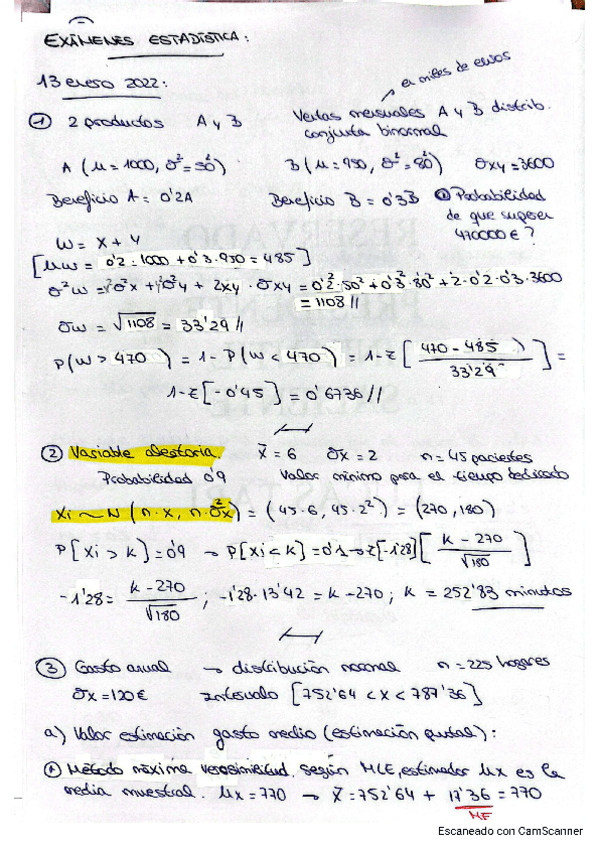 EXÁMENES ESTADÍSTICA:
13 enero 2022:
en miles de euros
① 2 productos A y B Ventas mensuales A y B distrib. conjunta binormal
A (μ = 1000, σ² = 50²) B (μ = 950, σ² = 80²) σxy = 3600
Beneficio A = 0'2A Beneficio B = 0'3B Probabilidad de que supere 470000 € ?
W = X + Y
[μw = 0'2·1000 + 0'3·950 = 485]
σ²w = σ²x + σ²y + 2xy · σxy = 0'2²·50² + 0'3²·80² + 2·0'2·0'3·3600
= 1108 //
σw = √1108 = 33'29 //
P(W > 470) = 1 - P(W < 470) = 1 - Z [ (470 - 485) / 33'29 ] =
1 - Z [-0'45] = 0'6736 //
② Variable aleatoria. x̄ = 6 σx = 2 n = 45 pacientes
Probabilidad 0'9 Valor mínimo para el tiempo dedicado
Xi ~ N (n·x, n·σ²x) = (45·6, 45·2²) = (270, 180)
P[Xi > k] = 0'9 → P[Xi < k] = 0'1 → Z[-1'28] [ (k - 270) / √180 ]
-1'28 = (k - 270) / √180 ; -1'28·13'42 = k - 270 ; k = 252'83 minutos
③ Gasto anual → distribución normal n = 225 hogares
σx = 120 € Intervalo [752'64 < x < 787'36]
a) Valor estimación gasto medio (estimación puntual):
Método máxima verosimilitud. Según MLE, estimador μx es la
media muestral. μx = 770 → x̄ = 752'64 + 17'36 = 770
ME
Escaneado con CamScanner